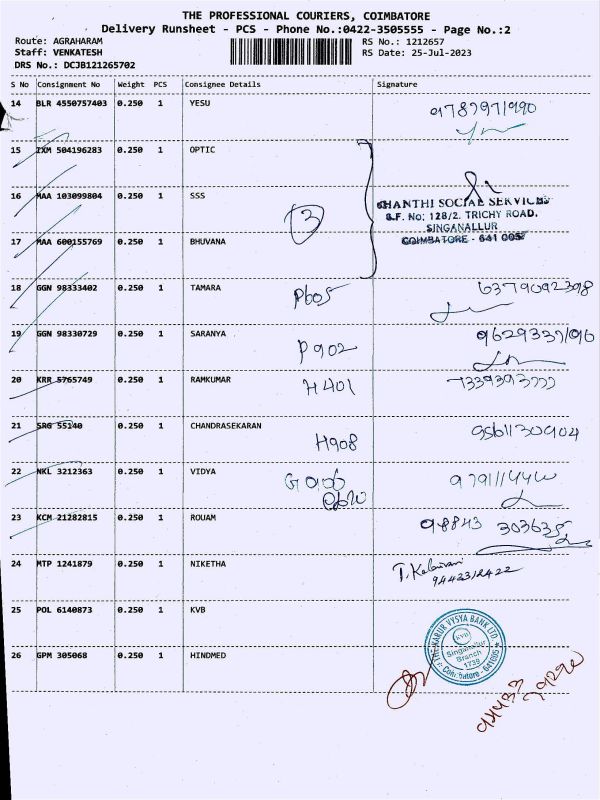 THE PROFESSIONAL COURIERS, COIMBATORE
Delivery Runsheet - PCS - Phone No.:0422-3505555 - Page No.:2
Route: AGRAHARAM RS No.: 1212657
Staff: VENKATESH RS Date: 25-Jul-2023
DRS No.: DCJB121265702
S No Consignment No Weight PCS Consignee Details Signature
14 BLR 4550757403 0.250 1 YESU
15 IXM 504196283 0.250 1 OPTIC
16 MAA 103099804 0.250 1 SSS
3
SHANTHI SOCIAL SERVICES
S.F. No: 128/2. TRICHY ROAD.
SINGANALLUR
COIMBATORE - 641 005
17 MAA 600155769 0.250 1 BHUVANA
18 GGN 98333402 0.250 1 TAMARA P605 6379092398
19 GGN 98330729 0.250 1 SARANYA P902
20 KRR 5765749 0.250 1 RAMKUMAR H401
21 SRG 55140 0.250 1 CHANDRASEKARAN H908
22 NKL 3212363 0.250 1 VIDYA
23 KCM 21282815 0.250 1 ROUAM 98843 303635
24 MTP 1241879 0.250 1 NIKETHA
25 POL 6140873 0.250 1 KVB
THE KARUR VYSYA BANK LTD.
KVB
Singanallur
Branch
1739
Coimbatore - 641005
26 GPM 305068 0.250 1 HINDMED